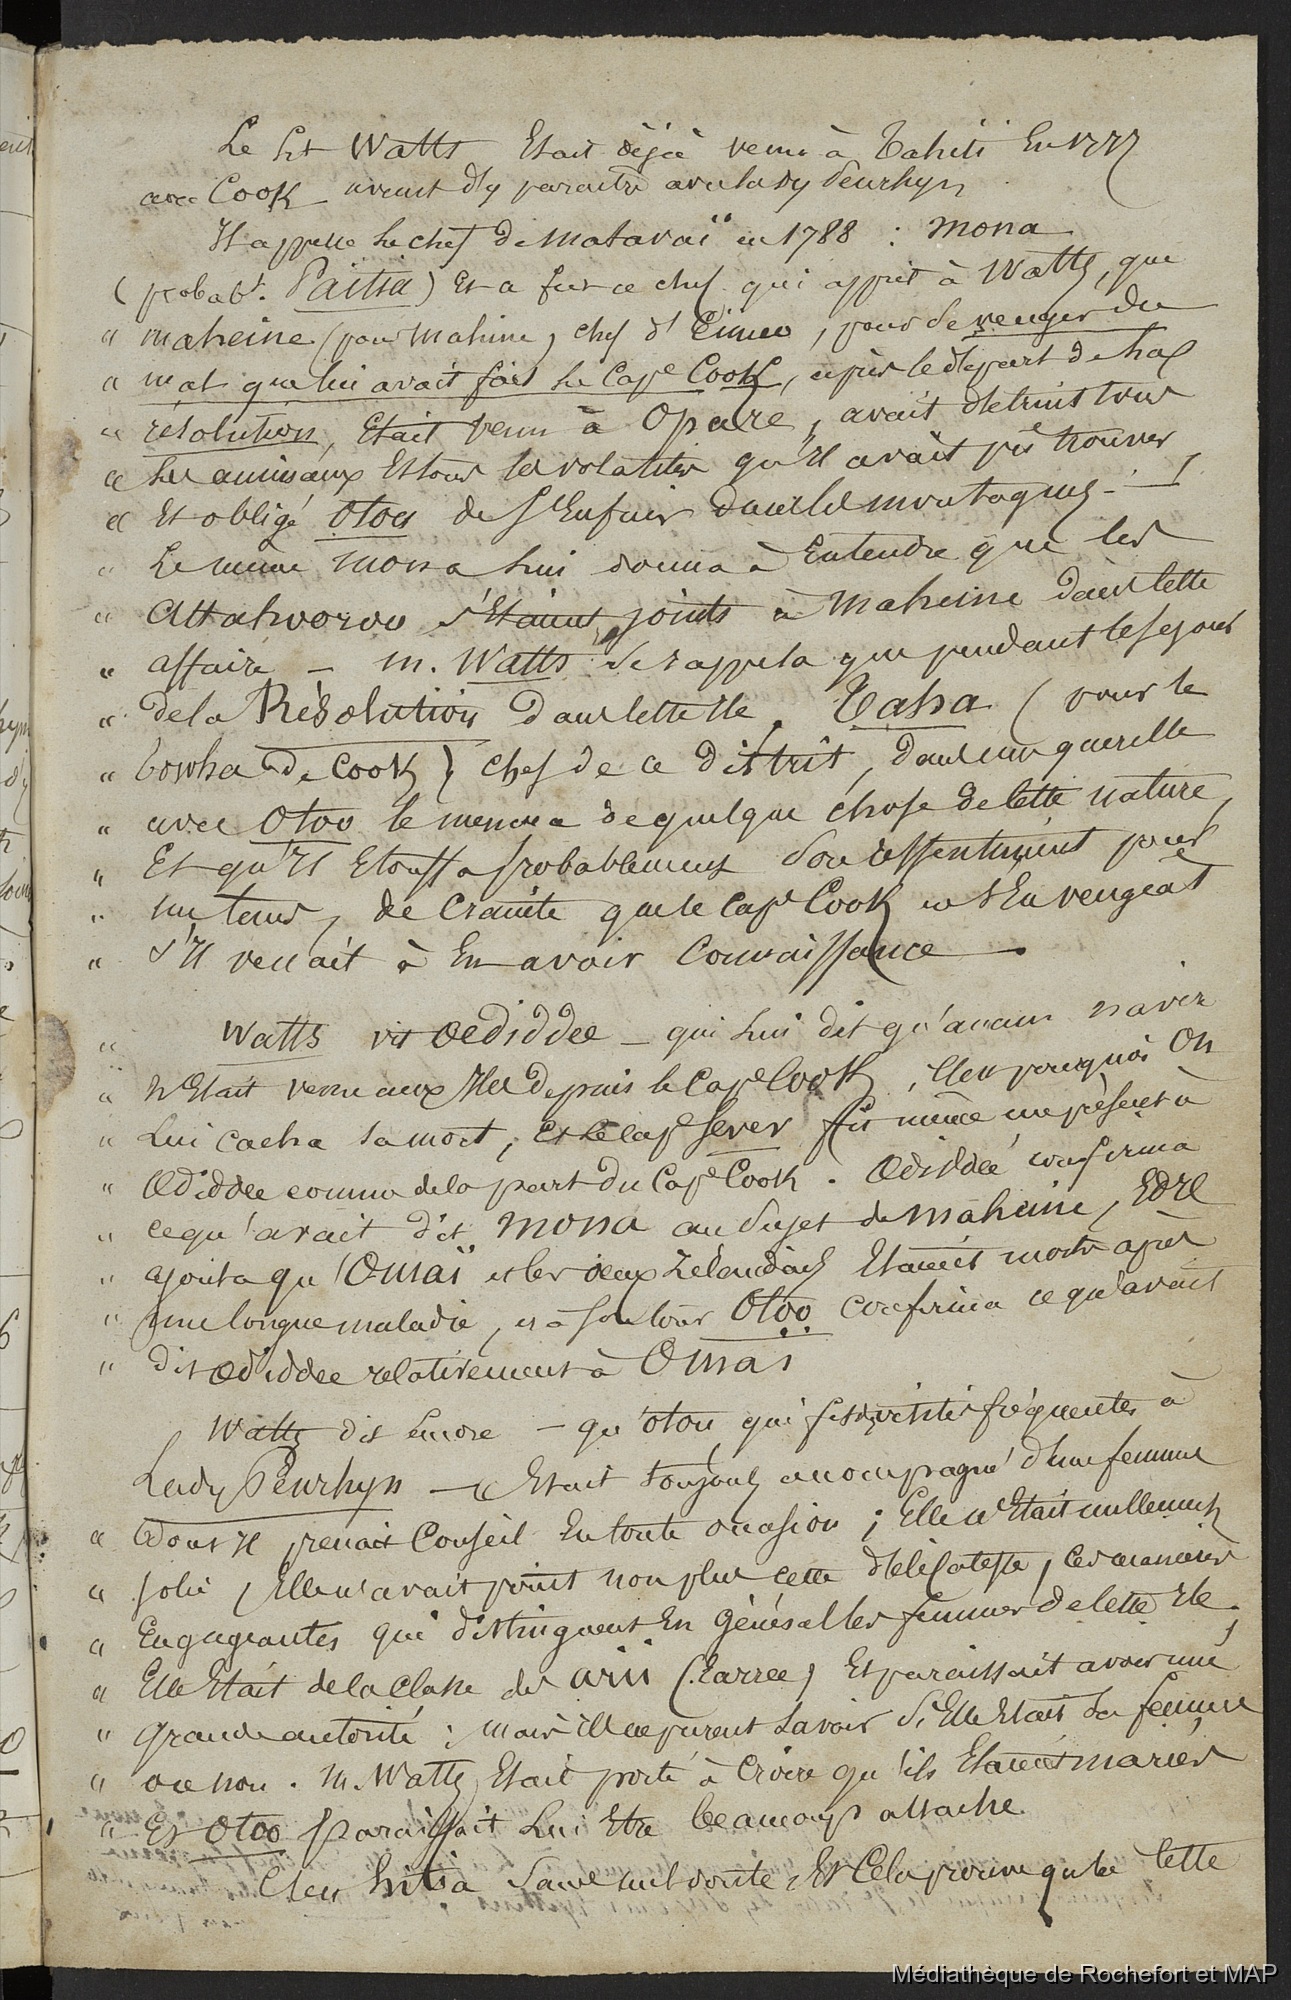 Le Lt Watts Etait déjà venu à Tahiti En 1777
avec Cook avant d'y paraitre avec lady Penrhyn
Il appelle le chef de Mataraï en 1788 : Mona
(probabt. Paitia) Et a fut ce chef qui apprit à Watts, que
" maheine (pour Mahine, chef d'Eimeo, pour se venger du
" mal que lui avait fait le Cape Cook, après le départ de la
" résolution, Etait venu à Opare, avait détruit tous
" les animaux Et tous les volatiles qu'il avait pû trouver,
" Et obligé Otoo de s'Enfuir dans les montagnes. —
" Le même Mona lui donna à Entendre que les
" Attahooroo s'Etaient joints à Maheine dans cette
" affaire — M. Watts se rappela que pendant le séjour
" de la Résolution dans cette Ile, Taha (pour le
" Towha de Cook) chef de ce district, dans une querelle
" avec Otoo le menaça de quelque chose de cette nature,
" Et qu'il Etouffa probablement son ressentiment pour
" un tems, de crainte que le Cape Cook ne s'En vengeât
" s'Il venait à En avoir Connaissance —.
" Watts vit Oediddee — qui lui dit qu'aucun navire
" n'Etait venu aux Iles depuis le Cape Cook, c'est pourquoi On
" Lui cacha sa mort, et le cape Sever fit même un présent à
" Oediddee comme de la part du Cape Cook. Oediddee confirma
" ce qu'avait dit Mona au sujet de Maheine, Et Il
" ajouta qu'Omaï et les deux Zélandais Etaient morts après
" une longue maladie, et à son tour Otoo confirma ce qu'avait
" dit Oediddee relativement à Omaï
Watts dit Encore — qu'otou qui fit des visites fréquentes à
Lady Penrhyn — " Etait toujours accompagné d'une femme
" dont Il prenait Conseil En toute occasion ; Elle n'Etait nullement
" jolie, Elle n'avait point non plus cette délicatesse, ces manières
" Engageantes qui distinguent En général les femmes de cette Ile.
" Elle Etait de la Classe des arii (Earree) Et paraissait avoir une
" grande autorité : mais ils ne purent savoir si Elle Etait sa femme
" ou non. M. Watts Etait porté à Croire qu'ils Etaient mariés
" Et Otoo paraissait Lui Etre beaucoup attaché.
C'est hitia sans nul doute, Et Cela prouve que cette
Médiathèque de Rochefort et MAP